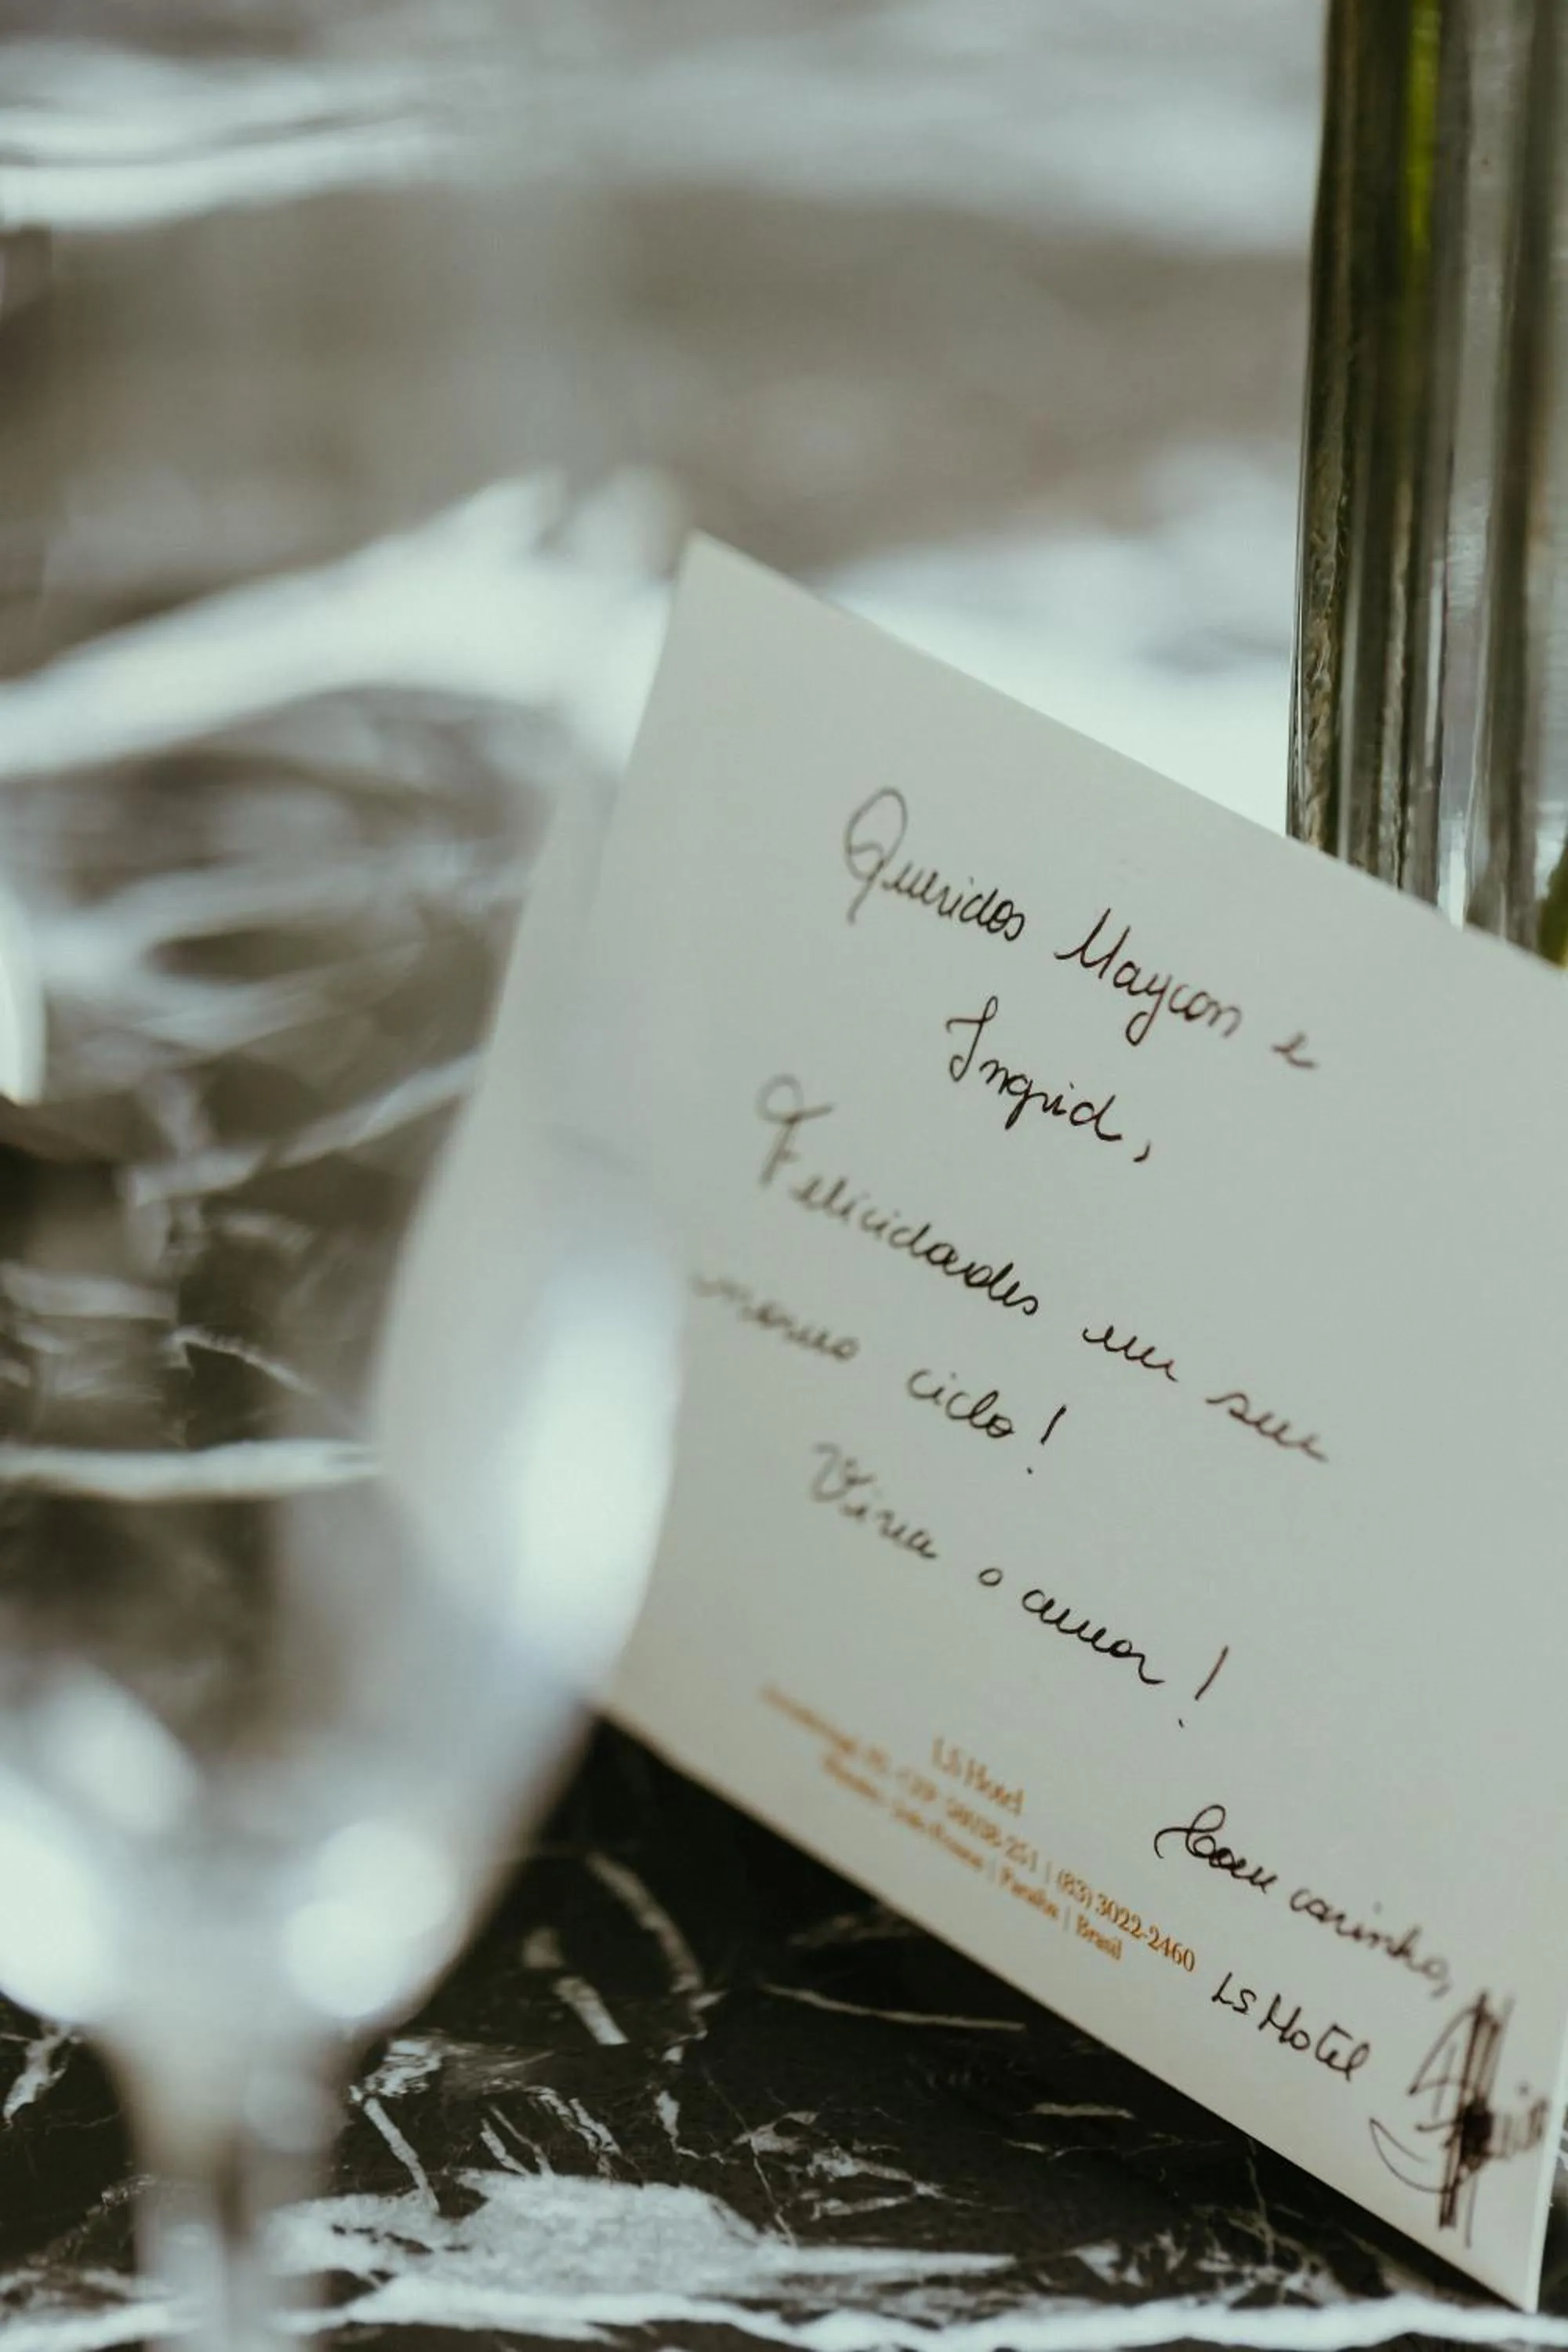 Queridos Maycon e
Ingrid,
Felicidades em seu
novo ciclo!
Viva o amor!
Com carinho,
LS Hotel
LS Hotel
| (83) 3022-2460
João Pessoa | Paraíba | Brasil